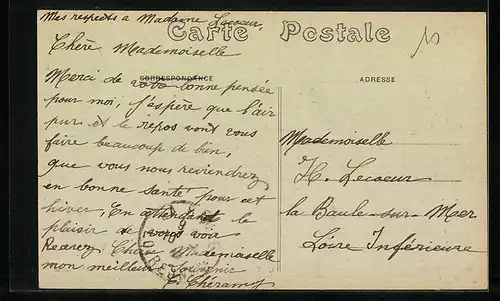 Mes respects a Madame Lecoeur,
Carte Postale
Chère Mademoiselle
CORRESPONDANCE
ADRESSE
Merci de votre bonne pensée
pour moi, j'espère que l'air
pur et le repos vont vous
faire beaucoup de bien,
que vous nous reviendrez
en bonne santé pour cet
hiver, En attendant le
plaisir de vous voir
Chère Mademoiselle
mon meilleur souvenir
Mademoiselle
H. Lecoeur
la Baule-sur-Mer
Loire Inférieure